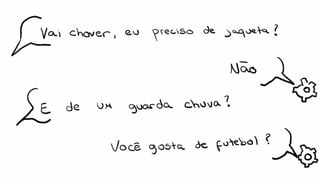 Vai chover, eu preciso de jaqueta?
Não
E de um guarda chuva?
Você gosta de futebol?